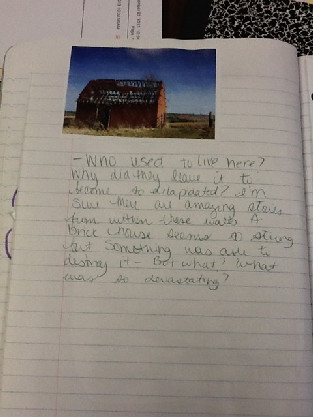 - Who used to live here?
Why did they leave it to
become so dilapadated? I'm
sure there are amazing stories
from within these walls. A
brick house seems so strong
but something was able to
destroy it - but what? What
was so devastating?